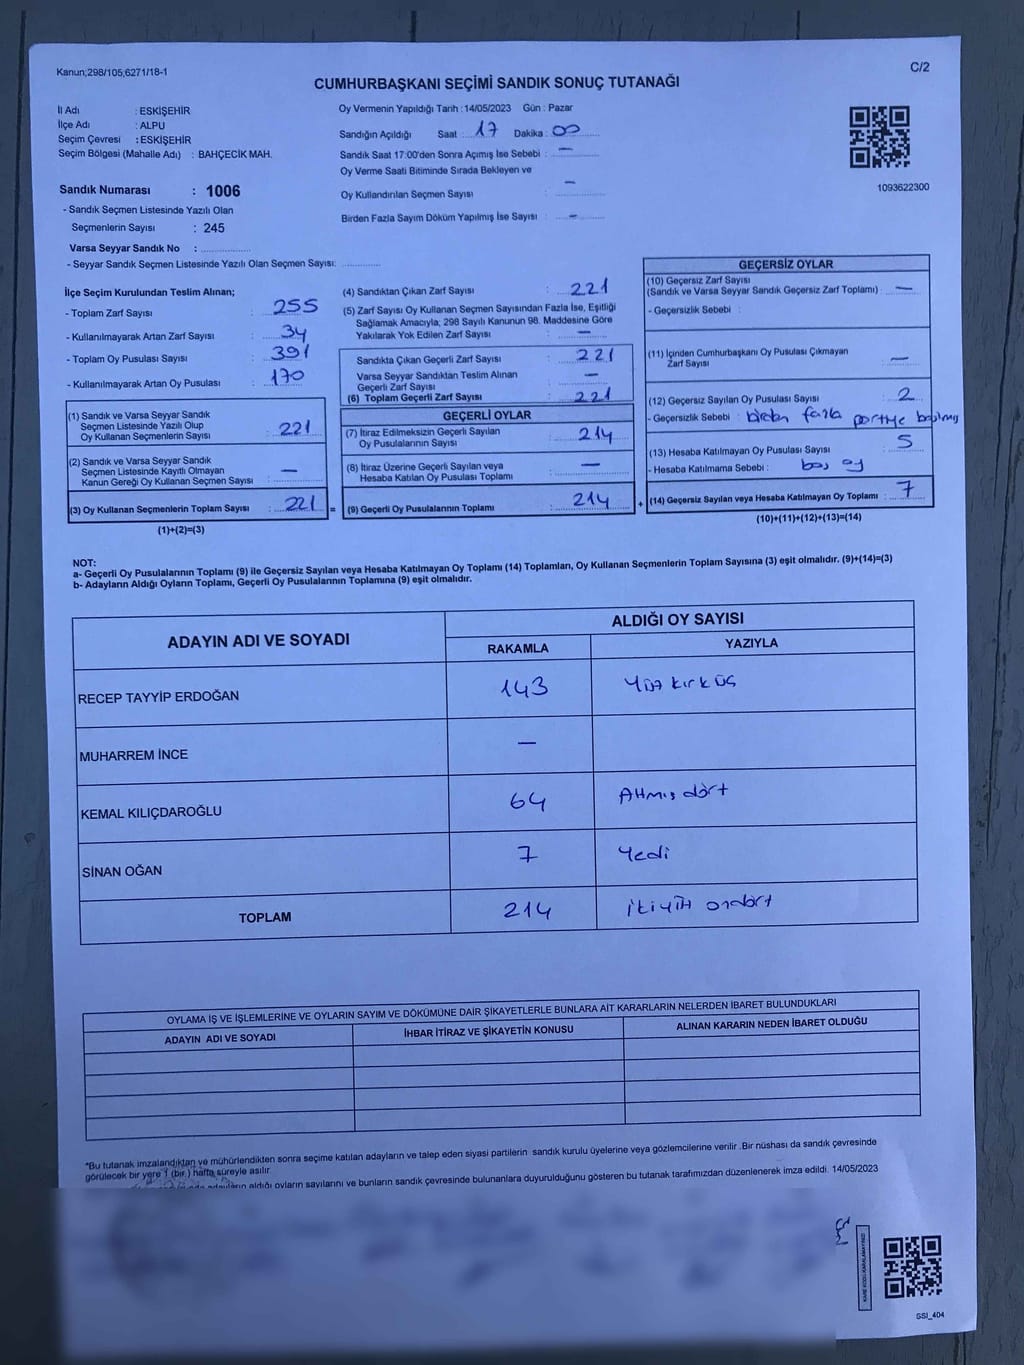 Kanun;298/105,6271/18-1
C/2
CUMHURBAŞKANI SEÇİMİ SANDIK SONUÇ TUTANAĞI
İl Adı : ESKİŞEHİR
İlçe Adı : ALPU
Seçim Çevresi : ESKİŞEHİR
Seçim Bölgesi (Mahalle Adı) : BAHÇECİK MAH.
Sandık Numarası : 1006
- Sandık Seçmen Listesinde Yazılı Olan
Seçmenlerin Sayısı : 245
Varsa Seyyar Sandık No :
- Seyyar Sandık Seçmen Listesinde Yazılı Olan Seçmen Sayısı:
Oy Vermenin Yapıldığı Tarih :14/05/2023 Gün : Pazar
Sandığın Açıldığı Saat : 17 Dakika : 00
Sandık Saat 17:00'den Sonra Açımış İse Sebebi : —
Oy Verme Saati Bitiminde Sırada Bekleyen ve
Oy Kullandırılan Seçmen Sayısı : —
Birden Fazla Sayım Döküm Yapılmış İse Sayısı : —
1093622300
İlçe Seçim Kurulundan Teslim Alınan;
- Toplam Zarf Sayısı : 255
- Kullanılmayarak Artan Zarf Sayısı : 34
- Toplam Oy Pusulası Sayısı : 391
- Kullanılmayarak Artan Oy Pusulası : 170
(1) Sandık ve Varsa Seyyar Sandık
Seçmen Listesinde Yazılı Olup
Oy Kullanan Seçmenlerin Sayısı : 221
(2) Sandık ve Varsa Seyyar Sandık
Seçmen Listesinde Kayıtlı Olmayan
Kanun Gereği Oy Kullanan Seçmen Sayısı : —
(3) Oy Kullanan Seçmenlerin Toplam Sayısı : 221 =
(1)+(2)=(3)
(4) Sandıktan Çıkan Zarf Sayısı : 221
(5) Zarf Sayısı Oy Kullanan Seçmen Sayısından Fazla İse, Eşitliği
Sağlamak Amacıyla, 298 Sayılı Kanunun 98. Maddesine Göre
Yakılarak Yok Edilen Zarf Sayısı : —
Sandıkta Çıkan Geçerli Zarf Sayısı : 221
Varsa Seyyar Sandıktan Teslim Alınan
Geçerli Zarf Sayısı : —
(6) Toplam Geçerli Zarf Sayısı : 221
GEÇERLİ OYLAR
(7) İtiraz Edilmeksizin Geçerli Sayılan
Oy Pusulalarının Sayısı : 214
(8) İtiraz Üzerine Geçerli Sayılan veya
Hesaba Katılan Oy Pusulası Toplamı : —
(9) Geçerli Oy Pusulalarının Toplamı : 214 +
GEÇERSİZ OYLAR
(10) Geçersiz Zarf Sayısı
(Sandık ve Varsa Seyyar Sandık Geçersiz Zarf Toplamı) : —
- Geçersizlik Sebebi :
(11) İçinden Cumhurbaşkanı Oy Pusulası Çıkmayan
Zarf Sayısı : —
(12) Geçersiz Sayılan Oy Pusulası Sayısı : 2
- Geçersizlik Sebebi : birden fazla partiye basılmış
(13) Hesaba Katılmayan Oy Pusulası Sayısı : 5
- Hesaba Katılmama Sebebi : boş oy
(14) Geçersiz Sayılan veya Hesaba Katılmayan Oy Toplamı : 7
(10)+(11)+(12)+(13)=(14)
NOT:
a- Geçerli Oy Pusulalarının Toplamı (9) ile Geçersiz Sayılan veya Hesaba Katılmayan Oy Toplamı (14) Toplamları, Oy Kullanan Seçmenlerin Toplam Sayısına (3) eşit olmalıdır. (9)+(14)=(3)
b- Adayların Aldığı Oyların Toplamı, Geçerli Oy Pusulalarının Toplamına (9) eşit olmalıdır.
ADAYIN ADI VE SOYADI
ALDIĞI OY SAYISI
RAKAMLA YAZIYLA
RECEP TAYYİP ERDOĞAN 143 Yüz kırk üç
MUHARREM İNCE —
KEMAL KILIÇDAROĞLU 64 Altmış dört
SİNAN OĞAN 7 Yedi
TOPLAM 214 ikiyüz ondört
OYLAMA İŞ VE İŞLEMLERİNE VE OYLARIN SAYIM VE DÖKÜMÜNE DAİR ŞİKAYETLERLE BUNLARA AİT KARARLARIN NELERDEN İBARET BULUNDUKLARI
ADAYIN ADI VE SOYADI İHBAR İTİRAZ VE ŞİKAYETİN KONUSU ALINAN KARARIN NEDEN İBARET OLDUĞU
*Bu tutanak imzalandıktan ve mühürlendikten sonra seçime katılan adayların ve talep eden siyasi partilerin sandık kurulu üyelerine veya gözlemcilerine verilir .Bir nüshası da sandık çevresinde
görülecek bir yere 1 (bir ) hafta süreyle asılır
adayların aldığı oyların sayılarını ve bunların sandık çevresinde bulunanlara duyurulduğunu gösteren bu tutanak tarafımızdan düzenlenerek imza edildi. 14/05/2023
KARE KODU KARALAMAYINIZ!
GSI_404